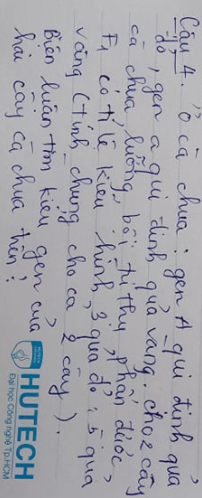 Câu 4. Ở cà chua: gen A qui định quả
đỏ, gen a qui định quả vàng. Cho 2 cây
cà chua lưỡng bội tự thụ phấn được
F1 có tỉ lệ kiểu hình 3 quả đỏ : 5 quả
vàng (tính chung cho cả 2 cây).
Biện luận tìm kiểu gen của
hai cây cà chua trên?
HUTECH
Đại học Công nghệ Tp.HCM